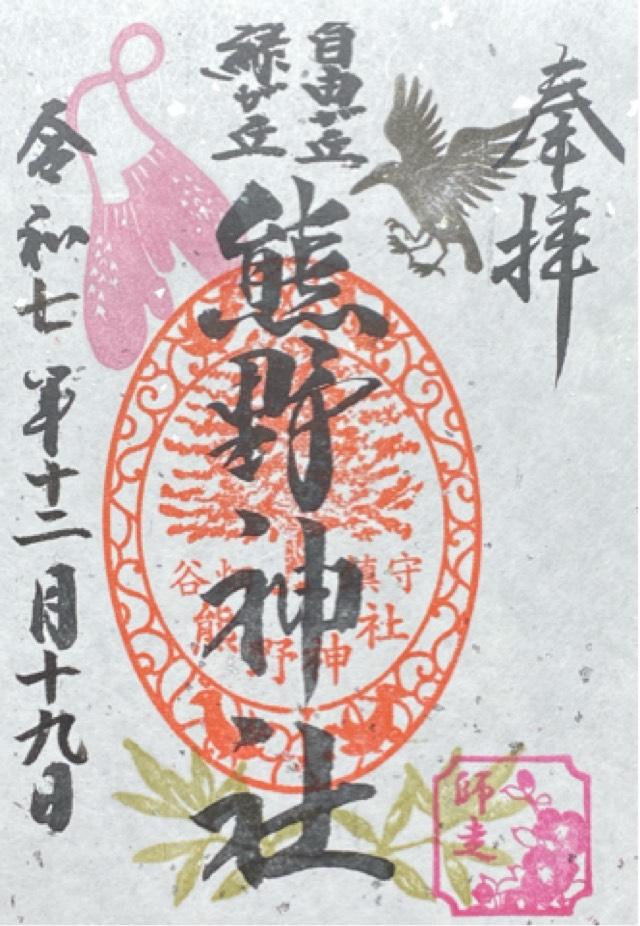 奉拝
自由が丘
緑が丘
熊野神社
谷 鎮守
熊野神社
師走
令和七年十二月十九日